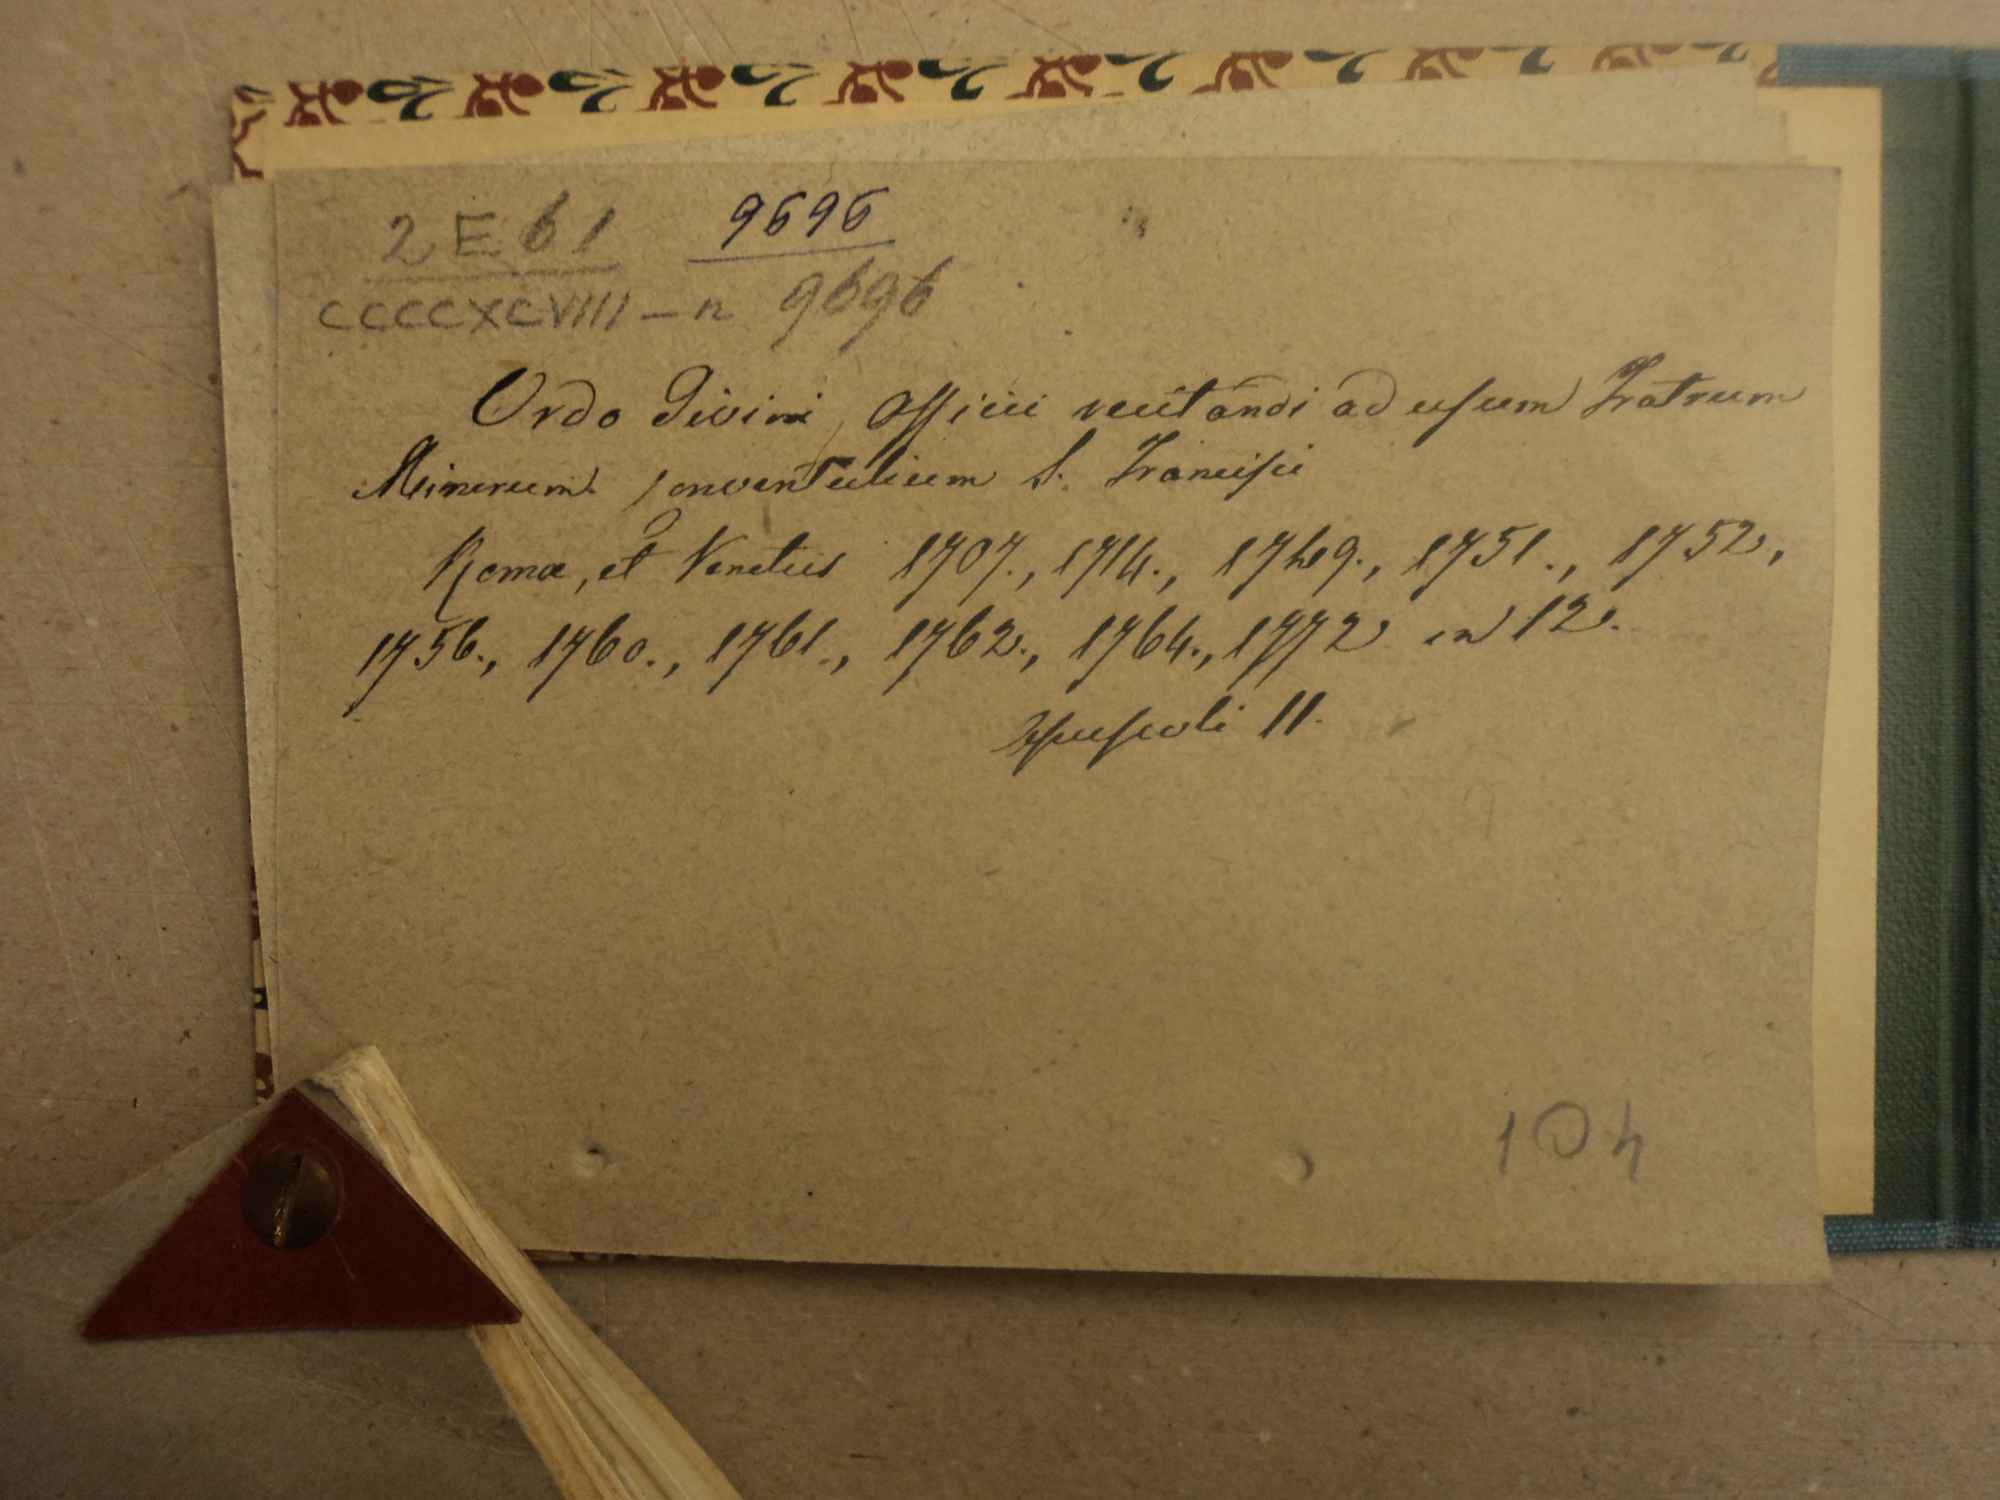 2 E 61 9696
CCCCXCVIII - n 9696
Ordo Divini Officii recitandi ad usum Fratrum
Minorum Conventulium S. Francisci
Romæ, et Venetiis 1707., 1714., 1749., 1751., 1752.,
1756., 1760., 1761., 1762., 1764., 1772 in 12.
Opuscoli 11.
104